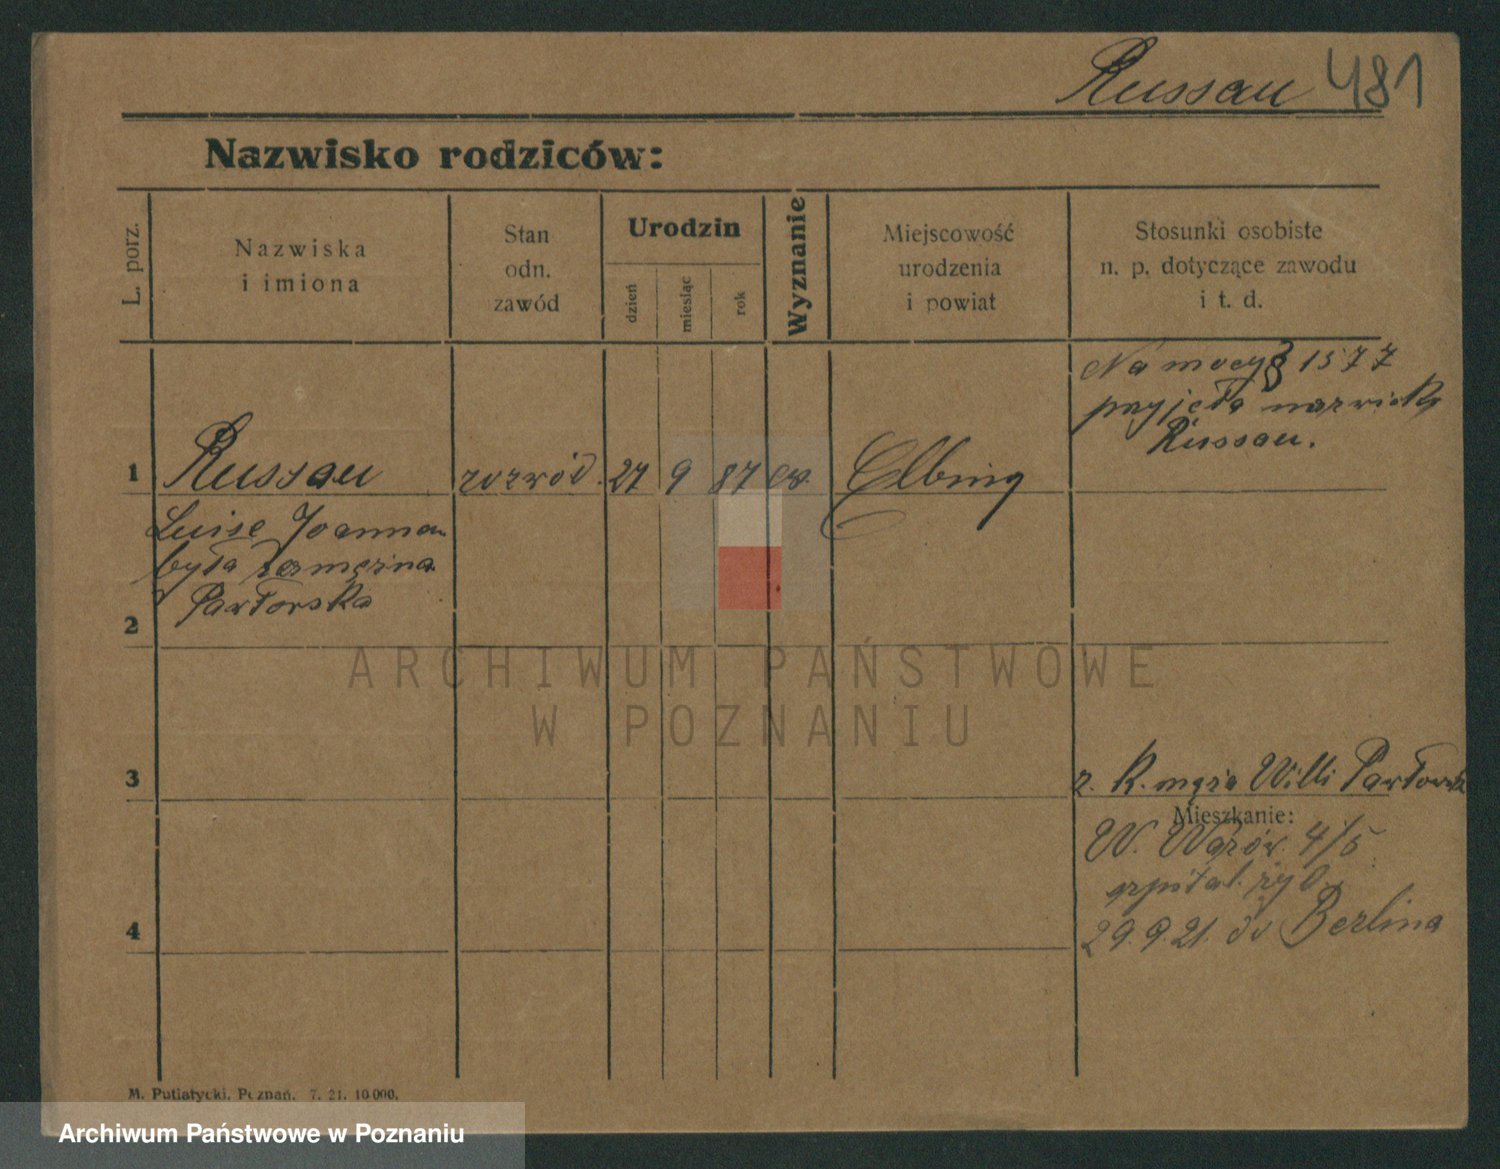 Russau 481
Nazwisko rodziców:
L. porz.
Nazwiska
i imiona
Stan
odn.
zawód
Urodzin
dzień
miesiąc
rok
Wyznanie
Miejscowość
urodzenia
i powiat
Stosunki osobiste
n. p. dotyczące zawodu
i t. d.
Na mocy § 1577
przyjęła nazwisko
Russau.
1 Russau rozwód. 27 9 87 ew. Elbing
Luise Joanna
była zamężna
Pawłorska
2
ARCHIWUM PAŃSTWOWE
W POZNANIU
3
z. K. męża Willi
Mieszkanie:
W. 4/5
szpital. żyd.
4
29. 9. 21. do Berlina
M. Putiatycki, Poznań. 7. 21. 10 000.
Archiwum Państwowe w Poznaniu